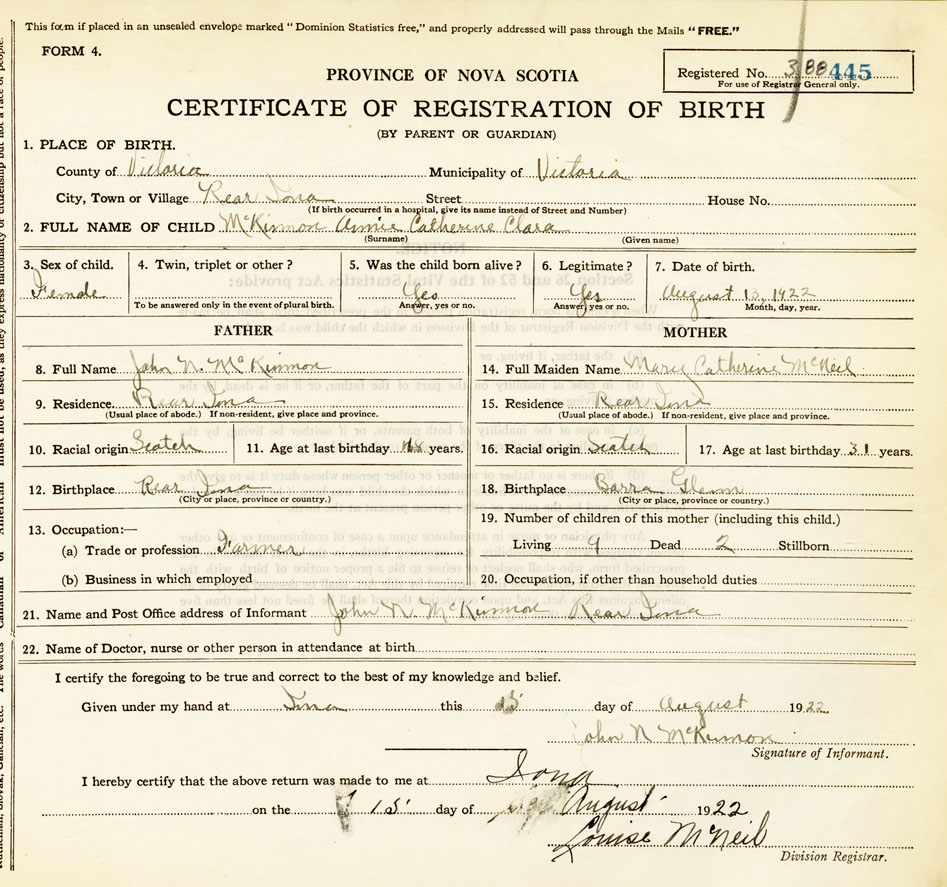 This form if placed in an unsealed envelope marked "Dominion Statistics free," and properly addressed will pass through the Mails "FREE."
FORM 4.
PROVINCE OF NOVA SCOTIA
Registered No. 388445
For use of Registrar General only.
CERTIFICATE OF REGISTRATION OF BIRTH
(BY PARENT OR GUARDIAN)
1. PLACE OF BIRTH.
County of Victoria Municipality of Victoria
City, Town or Village Rear Iona Street House No.
(If birth occurred in a hospital, give its name instead of Street and Number)
2. FULL NAME OF CHILD McKinnon Annie Catherine Clara
(Surname) (Given name)
3. Sex of child. 4. Twin, triplet or other? 5. Was the child born alive? 6. Legitimate? 7. Date of birth.
Female Yes Yes August 13, 1922
To be answered only in the event of plural birth. Answer, yes or no. Answer, yes or no. Month, day, year.
FATHER
8. Full Name John N. McKinnon
9. Residence Rear Iona
(Usual place of abode.) If non-resident, give place and province.
10. Racial origin Scotch 11. Age at last birthday years.
12. Birthplace Rear Iona
(City or place, province or country.)
13. Occupation:—
(a) Trade or profession Farmer
(b) Business in which employed
MOTHER
14. Full Maiden Name Mary Catherine McNeil
15. Residence Rear Iona
(Usual place of abode.) If non-resident, give place and province.
16. Racial origin Scotch 17. Age at last birthday 31 years.
18. Birthplace Barra Glenn
(City or place, province or country.)
19. Number of children of this mother (including this child.)
Living 9 Dead 2 Stillborn
20. Occupation, if other than household duties
21. Name and Post Office address of Informant John N. McKinnon Rear Iona
22. Name of Doctor, nurse or other person in attendance at birth
I certify the foregoing to be true and correct to the best of my knowledge and belief.
Given under my hand at Iona this 15 day of August 1922
John N McKinnon
Signature of Informant.
I hereby certify that the above return was made to me at Iona
on the 15 day of August 1922
Louise McNeil
Division Registrar.